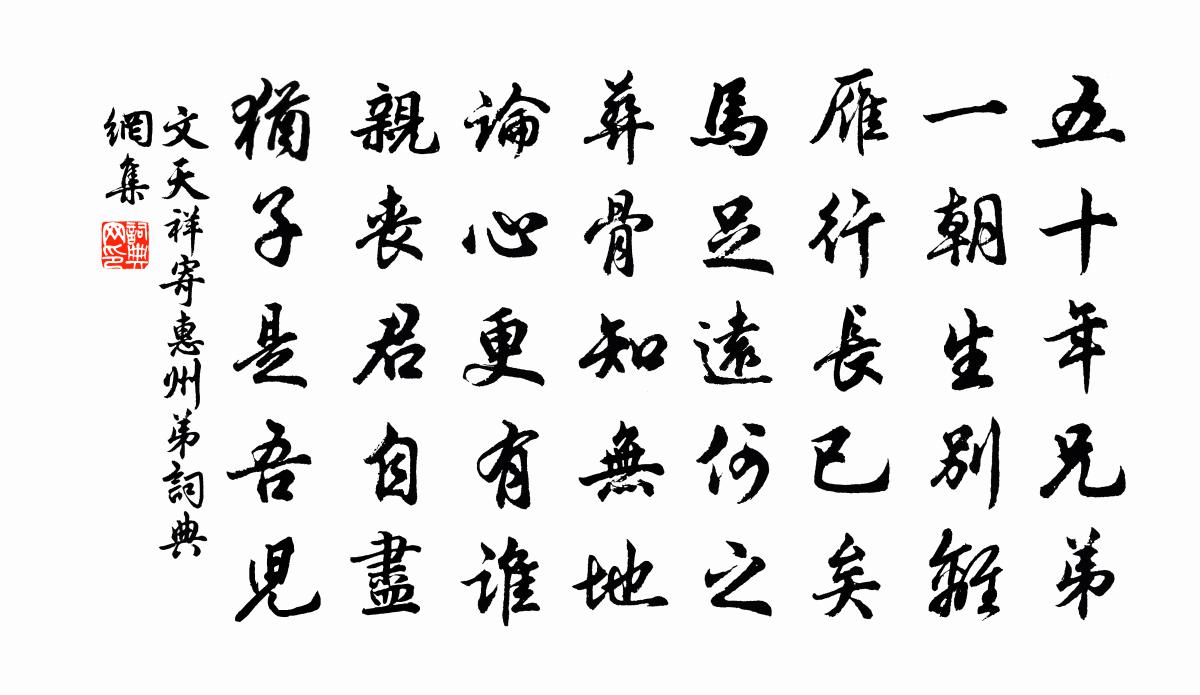 五十年兄弟
一朝生別離
雁行長已矣
馬足遠何之
葬骨知無地
論心更有誰
親喪君自盡
猶子是吾兒
文天祥寄惠州弟詞典
網集
詞典
网印